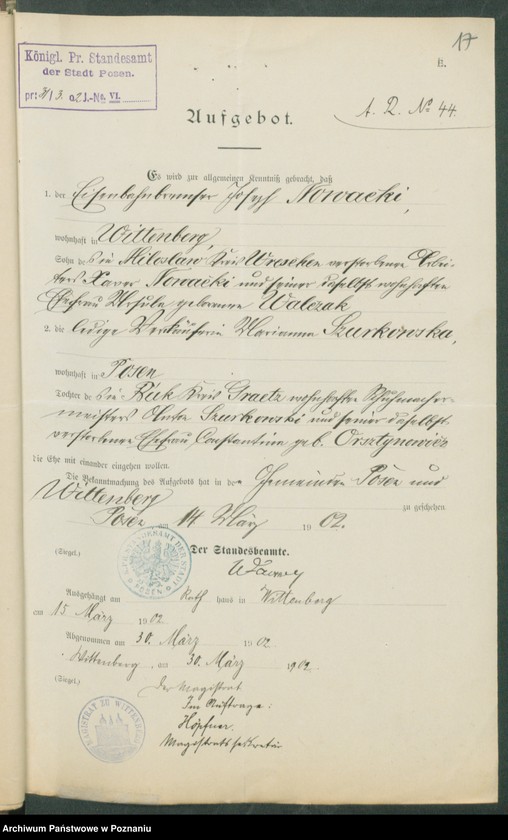 17
Königl. Pr. Standesamt
der Stadt Posen.
pr: 31/3. 02 J.-No. VI.
E.
A. R. No 44.
Aufgebot.
Es wird zur allgemeinen Kenntniß gebracht, daß
1. der Eisenbahnbremser Joseph Nowacki,
wohnhaft in Wittenberg,
Sohn des in Miloslaw Kreis Wreschen verstorbenen Arbei-
ters Xaver Nowacki und seiner daselbst wohnhaften
Ehefrau Ursula geborenen Walczak
2. die ledige Verkäuferin Marianna Szurkowska,
wohnhaft in Posen
Tochter des in Buk Kreis Graetz wohnhaften Schuhmacher-
meisters Szurkowski und seiner daselbst
verstorbenen Ehefrau Constantina geb. Orsztynowicz
die Ehe mit einander eingehen wollen.
Die Bekanntmachung des Aufgebots hat in den Gemeinden Posen und
Wittenberg zu geschehen.
Posen am 14 März 1902.
(Siegel.) Der Standesbeamte.
Ausgehängt am Rathhaus in Wittenberg
am 15 März 1902
Abgenommen am 30. März 1902
Wittenberg, am 30. März 1902.
(Siegel.)
Der Magistrat
Im Auftrage:
Höpfner.
Magistratssekretär
MAGISTRAT ZU WITTENBERG
Archiwum Państwowe w Poznaniu